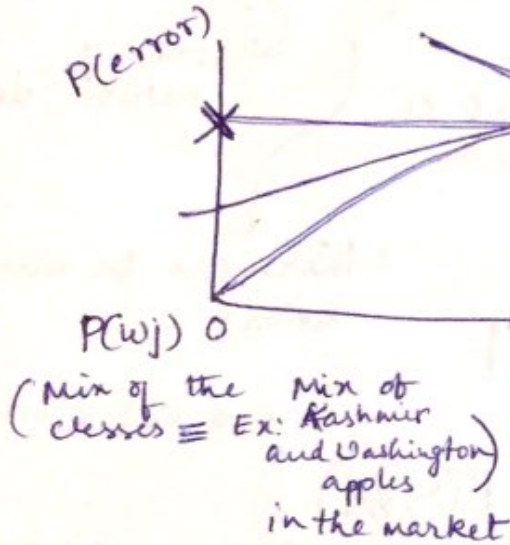 P(error)
P(wj) 0
(Mix of the Mix of
classes ≡ Ex: Kashmir
and Washington)
apples
in the market